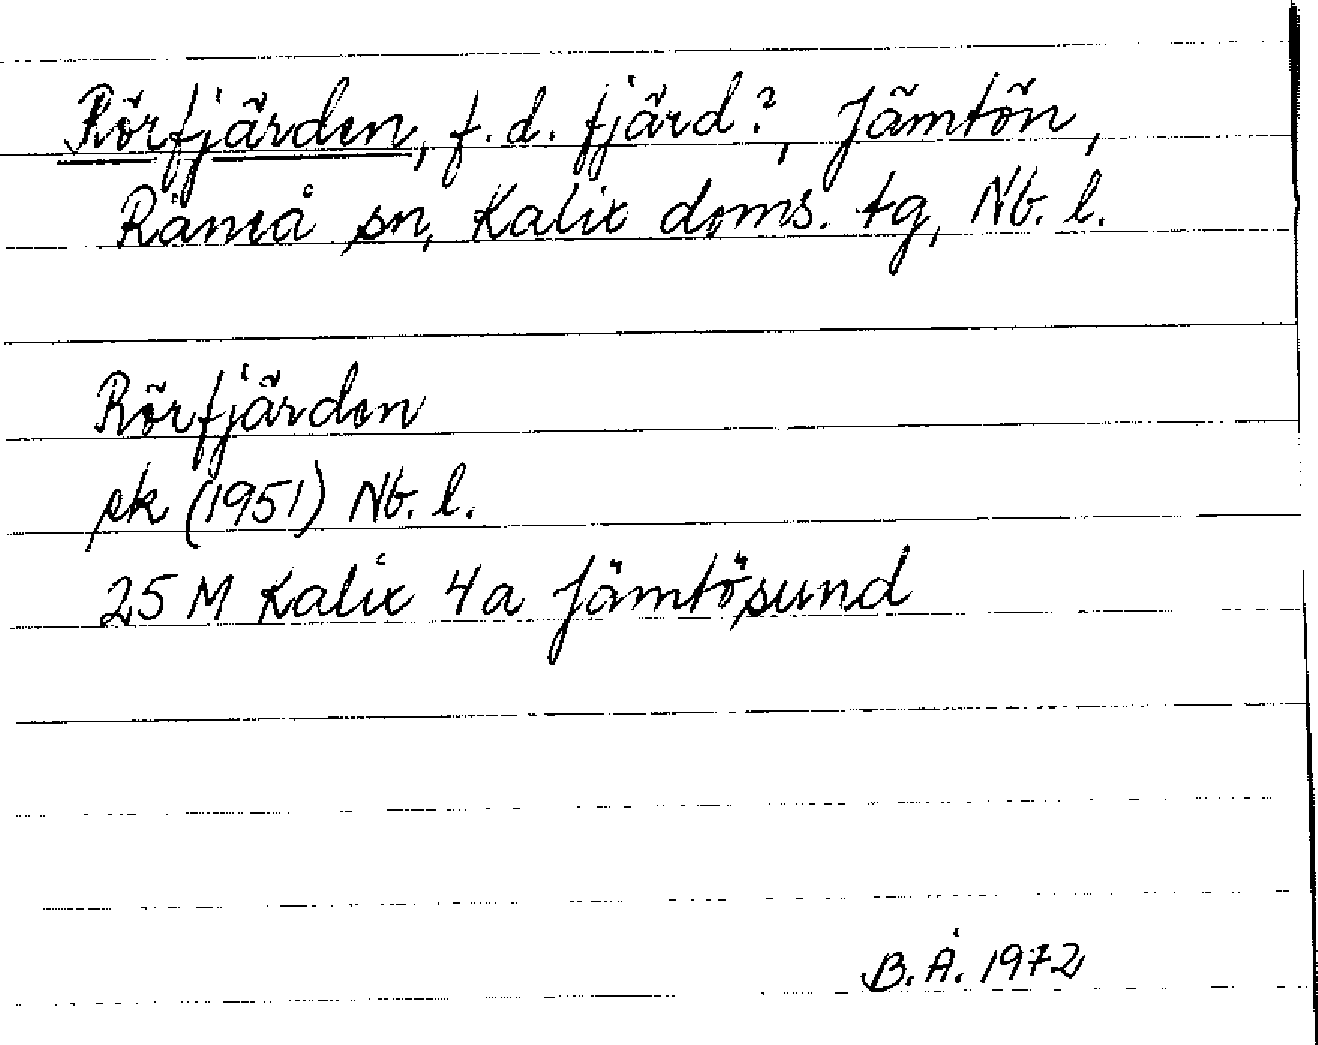 Rörfjärden, f.d. fjärd?, Jämtön,
Råneå sn, Kalix doms. tg, Nb. l.
Rörfjärden
ek (1951) Nb. l.
25 M Kalix 4a Jämtösund
B.Å. 1972